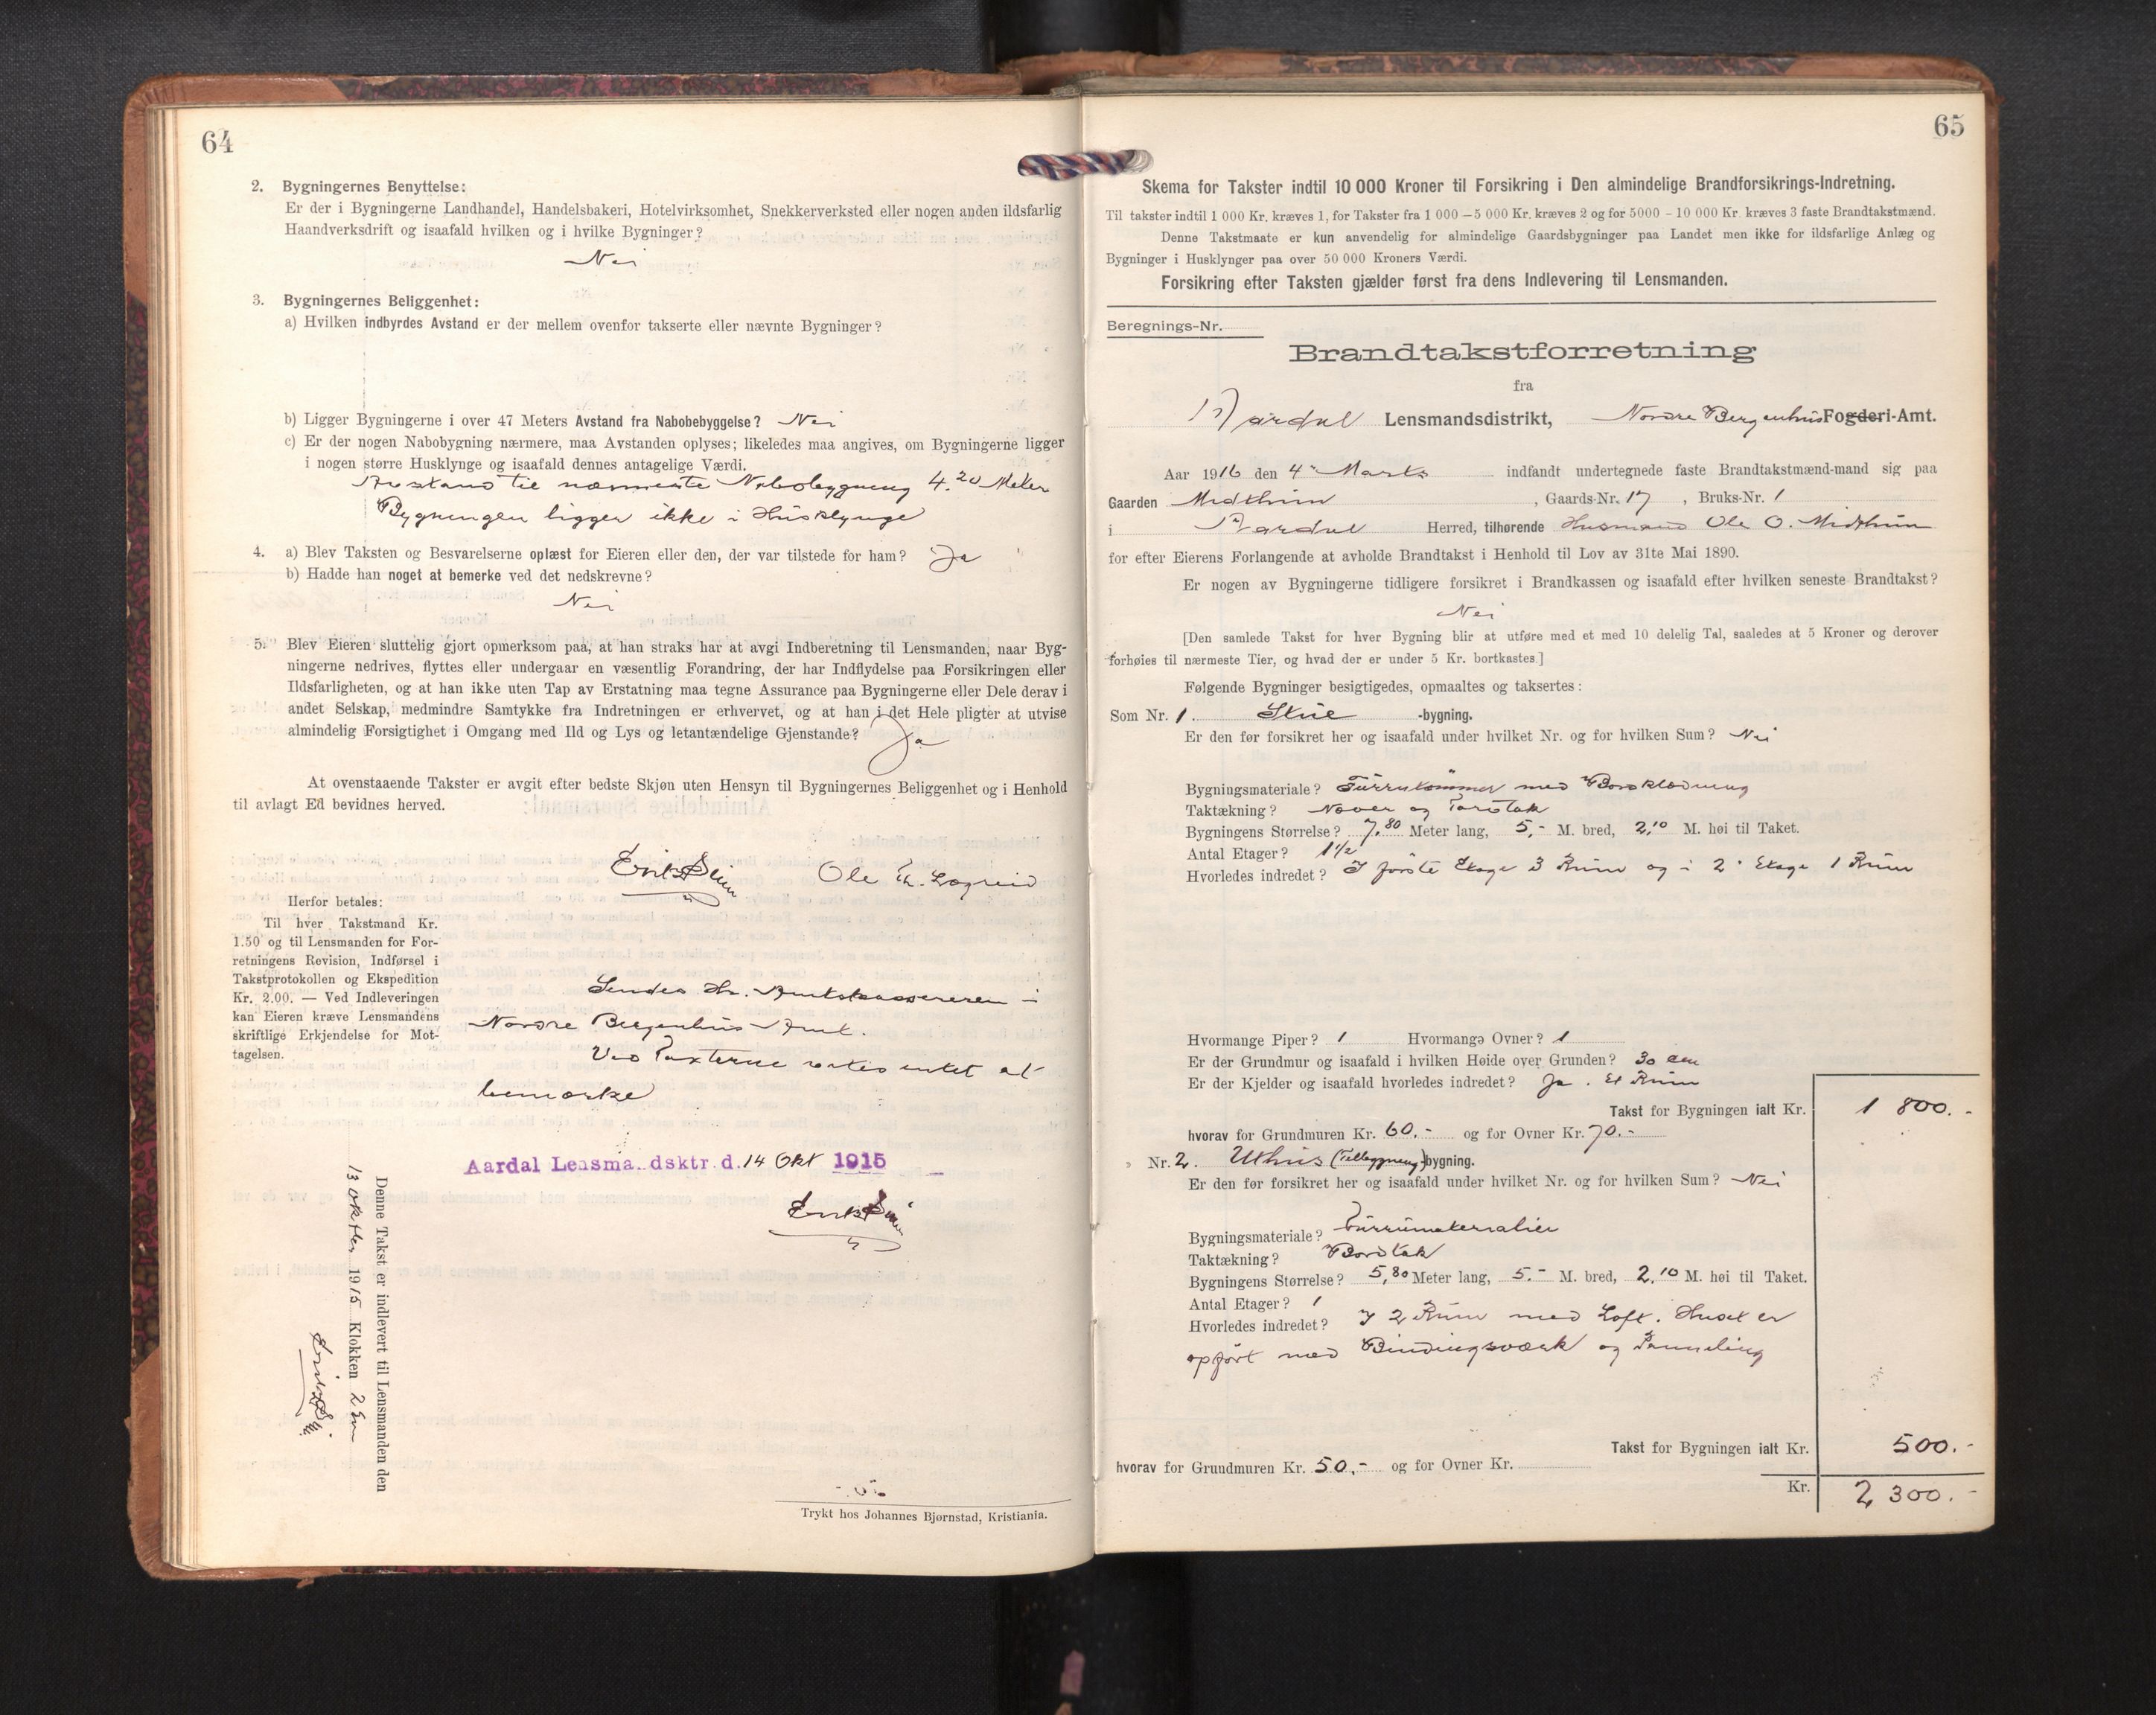 64
2. Bygningernes Benyttelse:
Er der i Bygningerne Landhandel, Handelsbakeri, Hotelvirksomhet, Snekkerverksted eller nogen anden ildsfarlig
Haandverksdrift og isaafald hvilken og i hvilke Bygninger?
Nei
3. Bygningernes Beliggenhet:
a) Hvilken indbyrdes Avstand er der mellem ovenfor takserte eller nævnte Bygninger?
b) Ligger Bygningerne i over 47 Meters Avstand fra Nabobebyggelse? Nei
c) Er der nogen Nabobygning nærmere, maa Avstanden oplyses; likeledes maa angives, om Bygningerne ligger
i nogen større Husklynge og isaafald dennes antagelige Værdi.
Avstand til nærmeste Nabobygning 4.20 Meter
Bygningen ligger ikke i Husklynge
4. a) Blev Taksten og Besvarelserne oplæst for Eieren eller den, der var tilstede for ham? Ja
b) Hadde han noget at bemerke ved det nedskrevne?
Nei
5. Blev Eieren sluttelig gjort opmerksom paa, at han straks har at avgi Indberetning til Lensmanden, naar Byg-
ningerne nedrives, flyttes eller undergaar en væsentlig Forandring, der har Indflydelse paa Forsikringen eller
Ildsfarligheten, og at han ikke uten Tap av Erstatning maa tegne Assurance paa Bygningerne eller Dele derav i
andet Selskap, medmindre Samtykke fra Indretningen er erhvervet, og at han i det Hele pligter at utvise
almindelig Forsigtighet i Omgang med Ild og Lys og letantændelige Gjenstande? Ja
At ovenstaaende Takster er avgit efter bedste Skjøn uten Hensyn til Bygningernes Beliggenhet og i Henhold
til avlagt Ed bevidnes herved.
Ole Th. Lægreid
Herfor betales:
Til hver Takstmand Kr.
1.50 og til Lensmanden for For-
retningens Revision, Indførsel i
Takstprotokollen og Ekspedition
Kr. 2.00. — Ved Indleveringen
kan Eieren kræve Lensmandens
skriftlige Erkjendelse for Mot-
tagelsen.
Sendes Hr. Amtskassereren i
Nordre Bergenhus Amt.
Ved Taxterne vites intet at
bemærke
Aardal Lensma dsktr. d. 14 Okt 1915
Denne Takst er indlevert til Lensmanden den
13 oktbr 1915 Klokken 2 Em
Trykt hos Johannes Bjørnstad, Kristiania.
65
Skema for Takster indtil 10 000 Kroner til Forsikring i Den almindelige Brandforsikrings-Indretning.
Til takster indtil 1 000 Kr. kræves 1, for Takster fra 1 000 — 5 000 Kr. kræves 2 og for 5000 - 10 000 Kr. kræves 3 faste Brandtakstmænd.
Denne Takstmaate er kun anvendelig for almindelige Gaardsbygninger paa Landet men ikke for ildsfarlige Anlæg og
Bygninger i Husklynger paa over 50 000 Kroners Værdi.
Forsikring efter Taksten gjælder først fra dens Indlevering til Lensmanden.
Beregnings-Nr.
Brandtakstforretning
fra
Aardal Lensmandsdistrikt, Nordre Bergenhus Fogderi-Amt.
Aar 1916 den 4 Marts indfandt undertegnede faste Brandtakstmænd-mand sig paa
Gaarden Midthun, Gaards-Nr. 17, Bruks-Nr. 1
i Aardal Herred, tilhørende Husmand Ole O. Midthun
for efter Eierens Forlangende at avholde Brandtakst i Henhold til Lov av 31te Mai 1890.
Er nogen av Bygningerne tidligere forsikret i Brandkassen og isaafald efter hvilken seneste Brandtakst?
Nei
[Den samlede Takst for hver Bygning blir at utføre med et med 10 delelig Tal, saaledes at 5 Kroner og derover
forhøies til nærmeste Tier, og hvad der er under 5 Kr. bortkastes.]
Følgende Bygninger besigtigedes, opmaaltes og taksertes:
Som Nr. 1. Stue -bygning.
Er den før forsikret her og isaafald under hvilket Nr. og for hvilken Sum? Nei
Bygningsmateriale? Furrutømmer med Bordklædning
Taktækning? Næver og Torvtak
Bygningens Størrelse? 7,80 Meter lang, 5,- M. bred, 2,10 M. høi til Taket.
Antal Etager? 1½
Hvorledes indredet? I første Etage 3 Rum og i 2 Etage 1 Rum
Hvormange Piper? 1 Hvormange Ovner? 1
Er der Grundmur og isaafald i hvilken Høide over Grunden? 30 cm
Er der Kjelder og isaafald hvorledes indredet? Ja. Et Rum
Takst for Bygningen ialt Kr. 1 800.-
hvorav for Grundmuren Kr. 60.- og for Ovner Kr. 70.-
Nr. 2. Uthus (Tilbygning) bygning.
Er den før forsikret her og isaafald under hvilket Nr. og for hvilken Sum? Nei
Bygningsmateriale? Furrumaterialier
Taktækning? Bordtak
Bygningens Størrelse? 5,80 Meter lang, 5.- M. bred, 2,10 M. høi til Taket.
Antal Etager? 1
Hvorledes indredet? I 2 Rum med Loft. Huset er
opført med Bindingsværk og Panneling
Takst for Bygningen ialt Kr. 500.-
hvorav for Grundmuren Kr. 50.- og for Ovner Kr.
Kr. 2 300.-